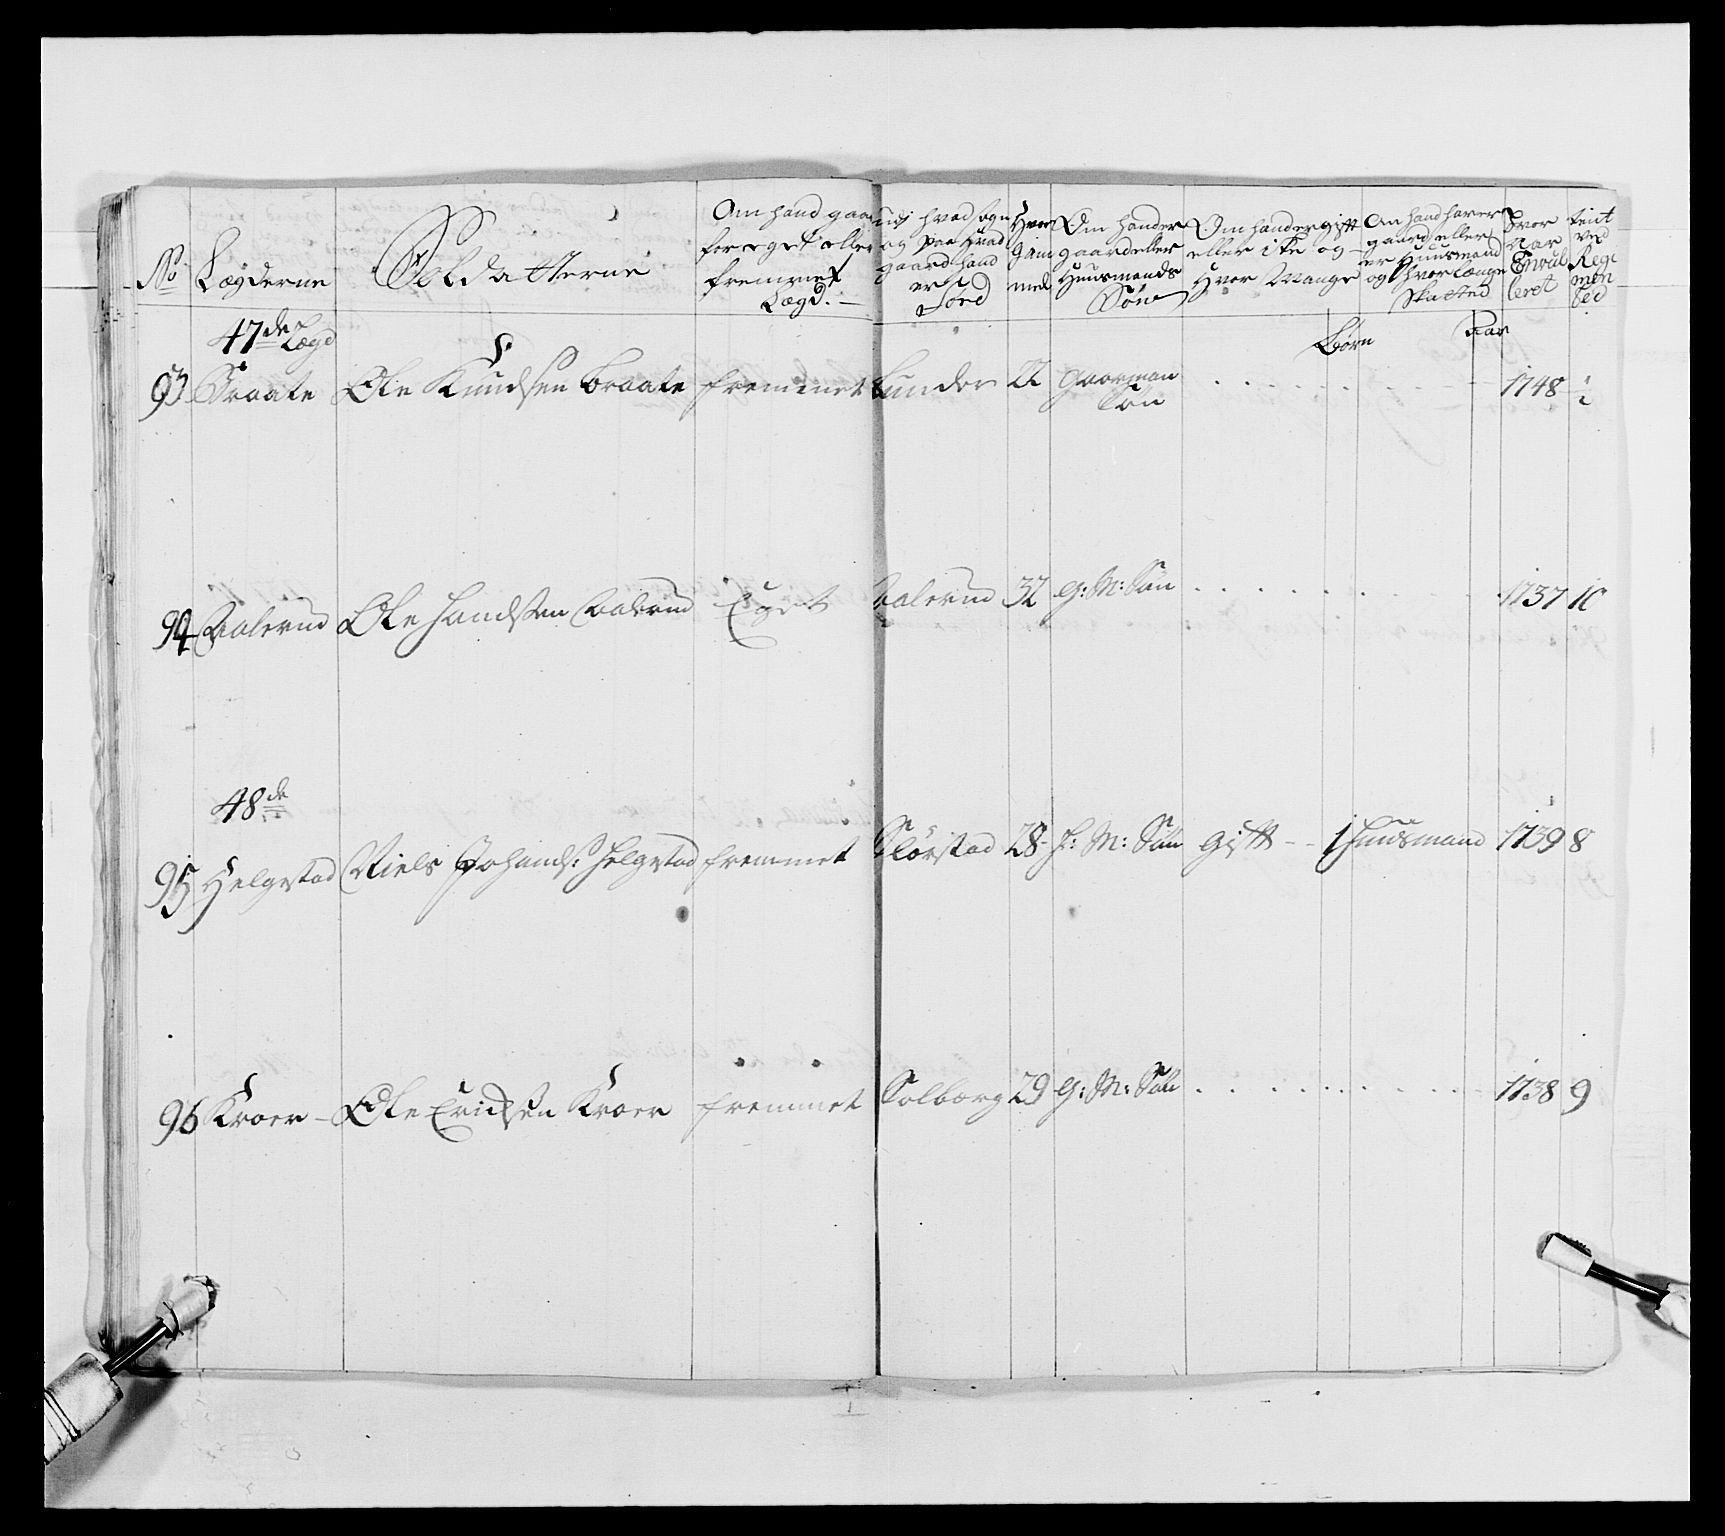 No
Lægderne
Soldatterne
Om hand gaar
for eget eller
fremmet
Lægd.
udj hvad Sogn
og paa hvad
gaard hand
er
Føed
Hvor
gam
mel
Om hand er
gaard eller
Huusmands
Søn
Om hand er gift
eller ike og
Hvor Mange
Om hand haver
gaard eller
er Huusmand
og hvor længe
Hvor
Aar
Enrul
leret
teint
ved
Regi
men
ted
47de Lægd
Børn
Aar
93 Braate Ole Knudsen Braate fremmet Sunder 22 gaarman Søn 1748 1/2
94 Aalerud Ole Handssen Aalerud Eget Aalerud 32 G: M: Søn 1737 10
48de
95 Helgestad Niels Johands: Helgestad fremmet Slørstad 28 H: M: Søn gift 1 Huusmand 1739 8
96 Kroer Ole Ericksen Kroer fremmet Solberg 29 G: M: Søn 1738 9